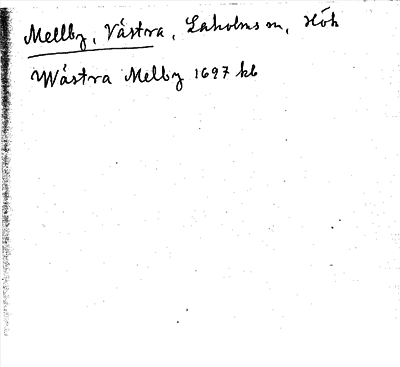 Mellby, Västra, Laholms sn, Hök
Wästra Melby 1697 kb